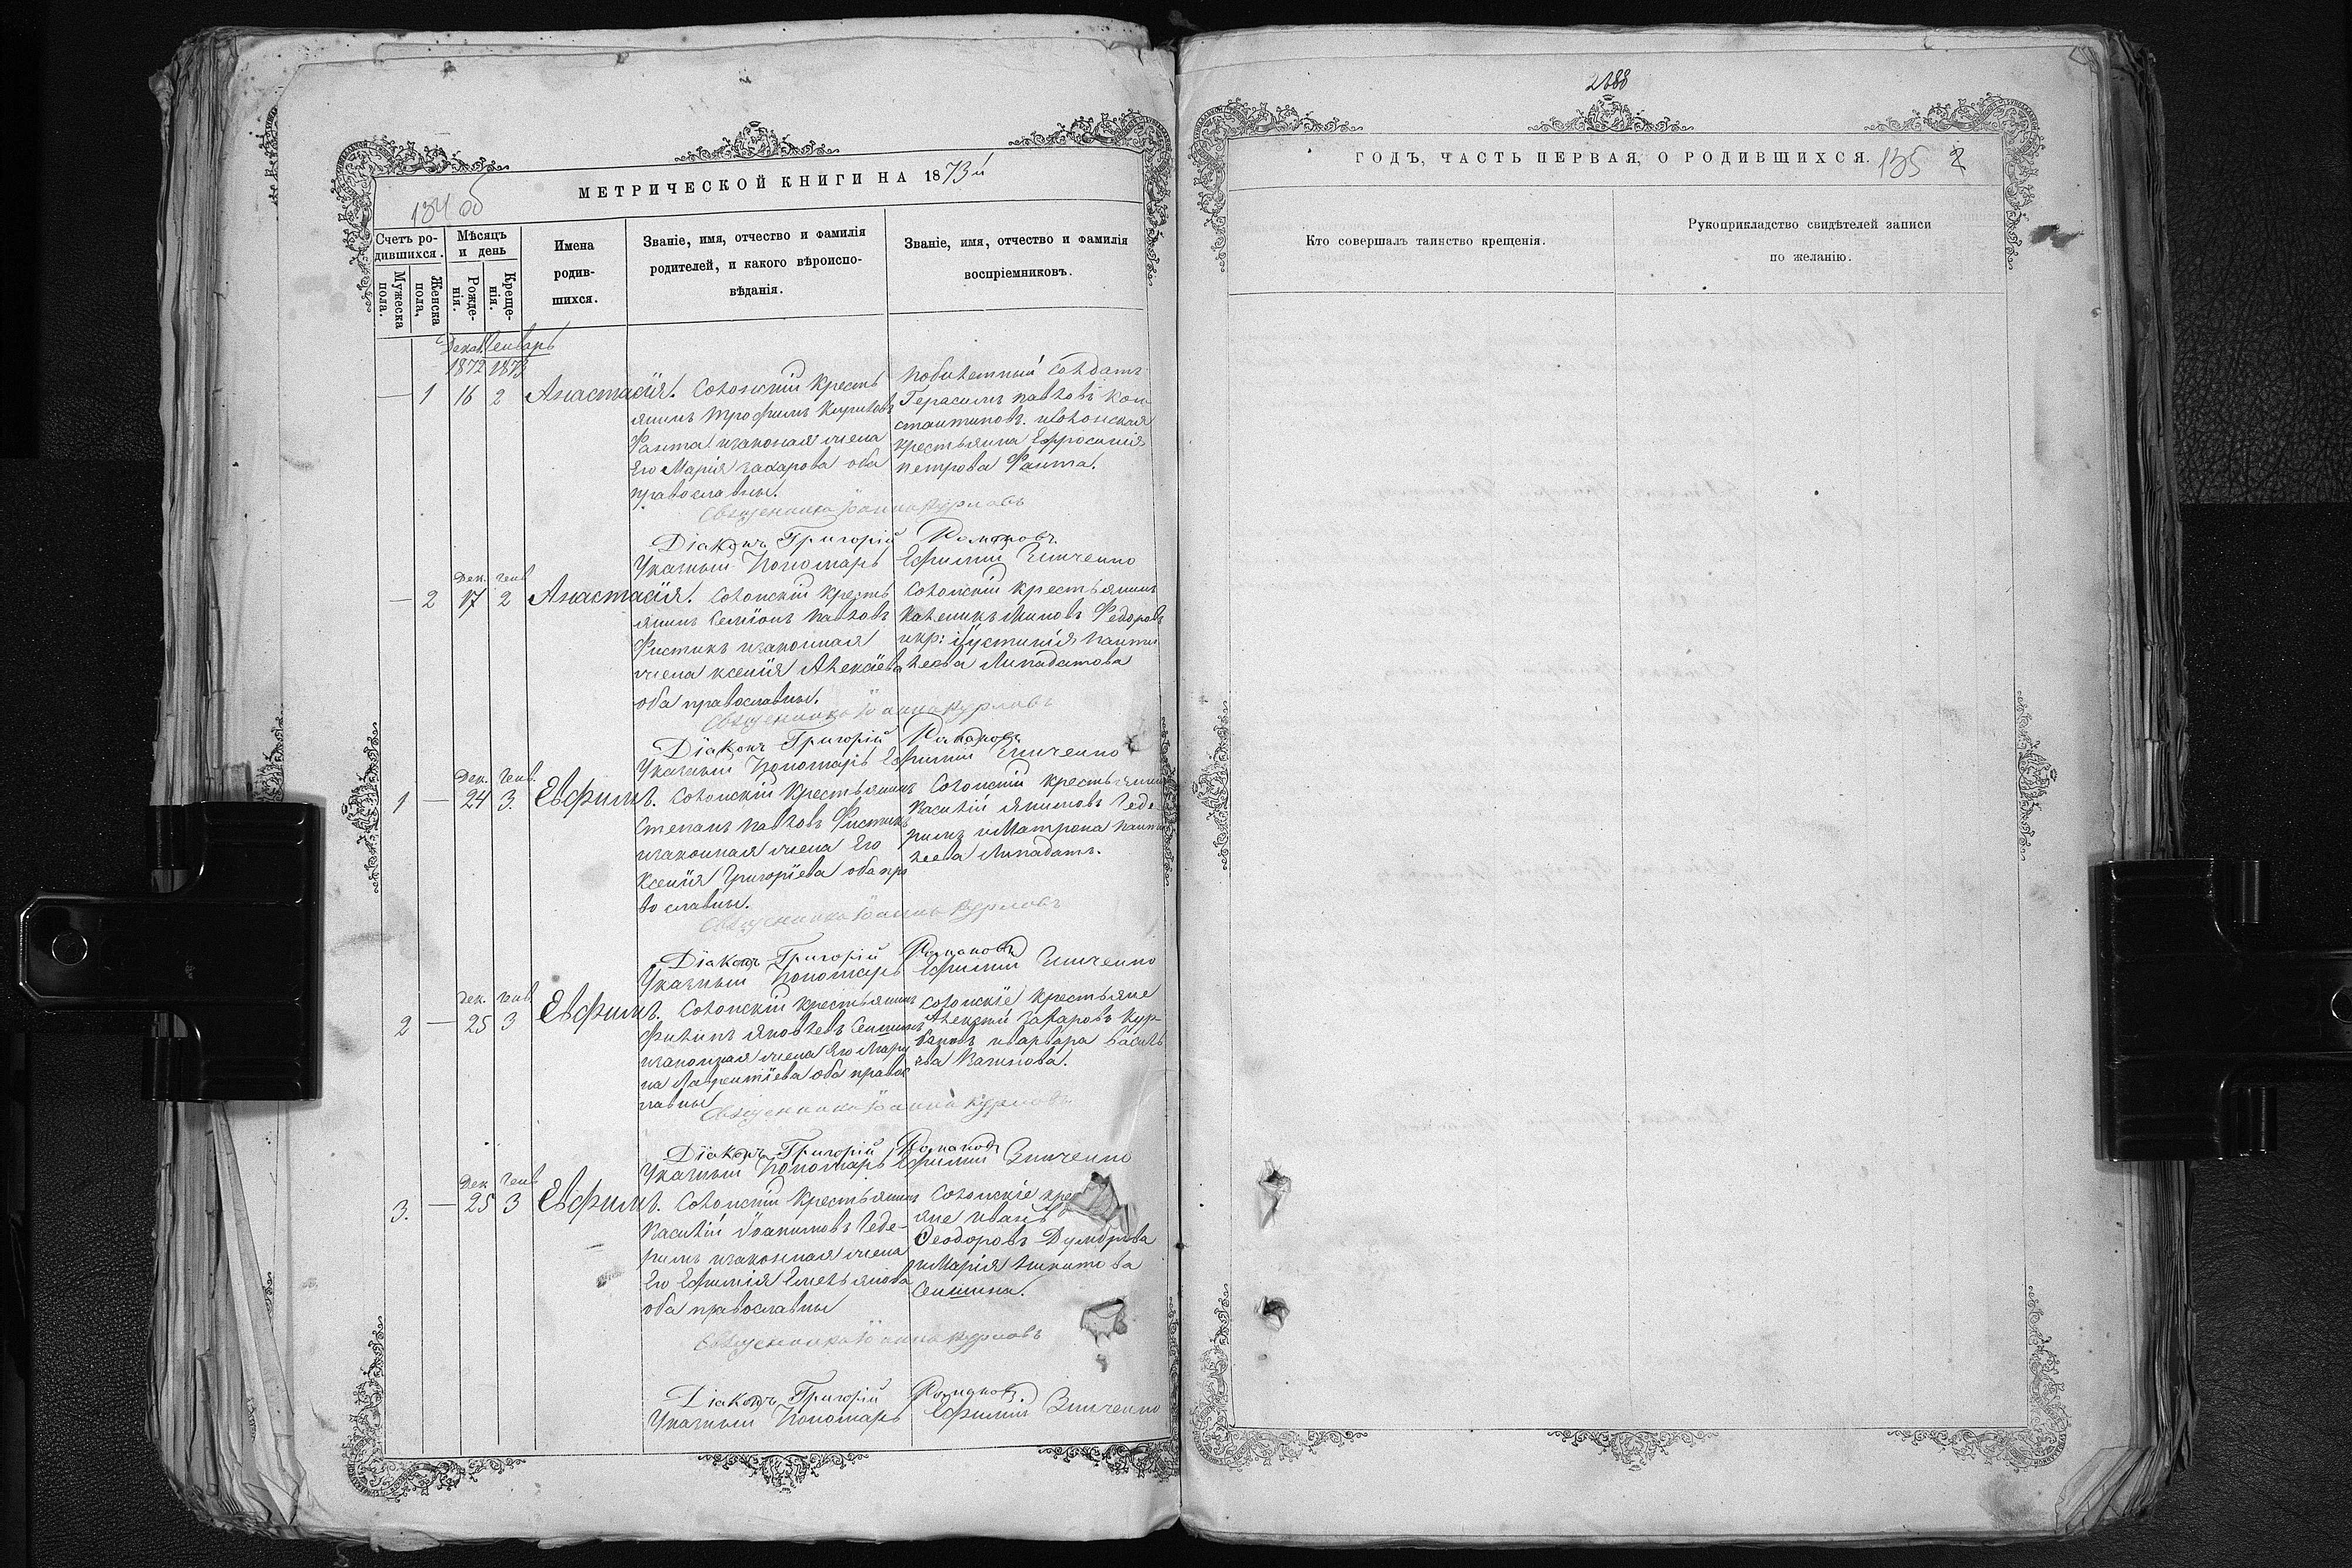 2888
МЕТРИЧЕСКОЙ КНИГИ НА 1873й
134 об
Счетъ ро-
дившихся.
Мужеска
пола.
Женска
пола.
Мѣсяцъ
и день
Рожде-
нія.
Креще-
нія.
Имена
родив-
шихся.
Званіе, имя, отчество и фамилія
родителей, и какого вѣроиспо-
вѣданія.
Званіе, имя, отчество и фамилія
воспріемниковъ.
Декаб. Генварь
1872 1873
— 1 16 2 Анастасія.
Солонскій кресть
янинъ Трофимъ Кириловъ
Фанта изаконая жена
Его Марія Захарова оба
православны.
побилетный солдатъ
Герасимъ павловъ Кон
стантиновъ. исолонская
крестьянка Ефросинія
петрова Фанта.
Священникъ Іоаннъ Курловъ
Діаконъ Григорій Романовъ
Указный Пономарь Ефимий Зинченко
Дек. Генв
— 2 17 2 Анастасія.
Солонскій кресть
янинъ Семіонъ павловъ
Фистикъ изаконная
жена ксенія Алексіева
оба православны.
Солонскій крестьянинъ
Каленикъ Миновъ Федоровъ
икр: Іустинія панти
леева Липадатова
Священникъ Іоаннъ Курловъ
Діаконъ Григорій Романовъ
Указный Пономарь Ефимий Зинченко
Дек. Генв.
1 — 24 3 Евфимъ.
Солонскій Крестьянинъ
Степанъ павловъ Фистикъ
изаконная жена Его
Ксенія Григоріева оба пра
во славны.
Солонскій крестьянинъ
Василій Якимовъ Чебе
римъ иМатрона панти
леева Липадатъ.
Священникъ Іоаннъ Курловъ
Діаконъ Григорій Романовъ
Указный Пономарь Ефимий Зинченко
Дек. Генв
2 — 25 3 Евфимъ.
Солонскій Крестьянинъ
Филипъ Яковлевъ Сеишинъ
изаконная жена Его Мари
на Лаврентіева оба правос
лавны
Солонскіе крестьяне
Алексій Захаровъ Кур-
бановъ иварвара Василь
ева
Священникъ Іоаннъ Курловъ
Діаконъ Григорій Романовъ
Указный Пономарь Ефимий Зинченко
Дек Генв
3. — 25 3 Евфимъ.
Солонскій Крестьянинъ
Василій Іоакимовъ Чебе-
римъ изаконная жена
Его Ефимія Емельянова
оба православны
Солонскіе кре
яне иванъ
Феодоровъ Думбрава
иМарія Никитова
Сеишина.
Священникъ Іоаннъ Курловъ
Діаконъ Григорій Романовъ.
Указный Пономарь Ефимий Зинченко
ГОДЪ, ЧАСТЬ ПЕРВАЯ, О РОДИВШИХСЯ. 135 2
Кто совершалъ таинство крещенія.
Рукоприкладство свидѣтелей записи
по желанію.